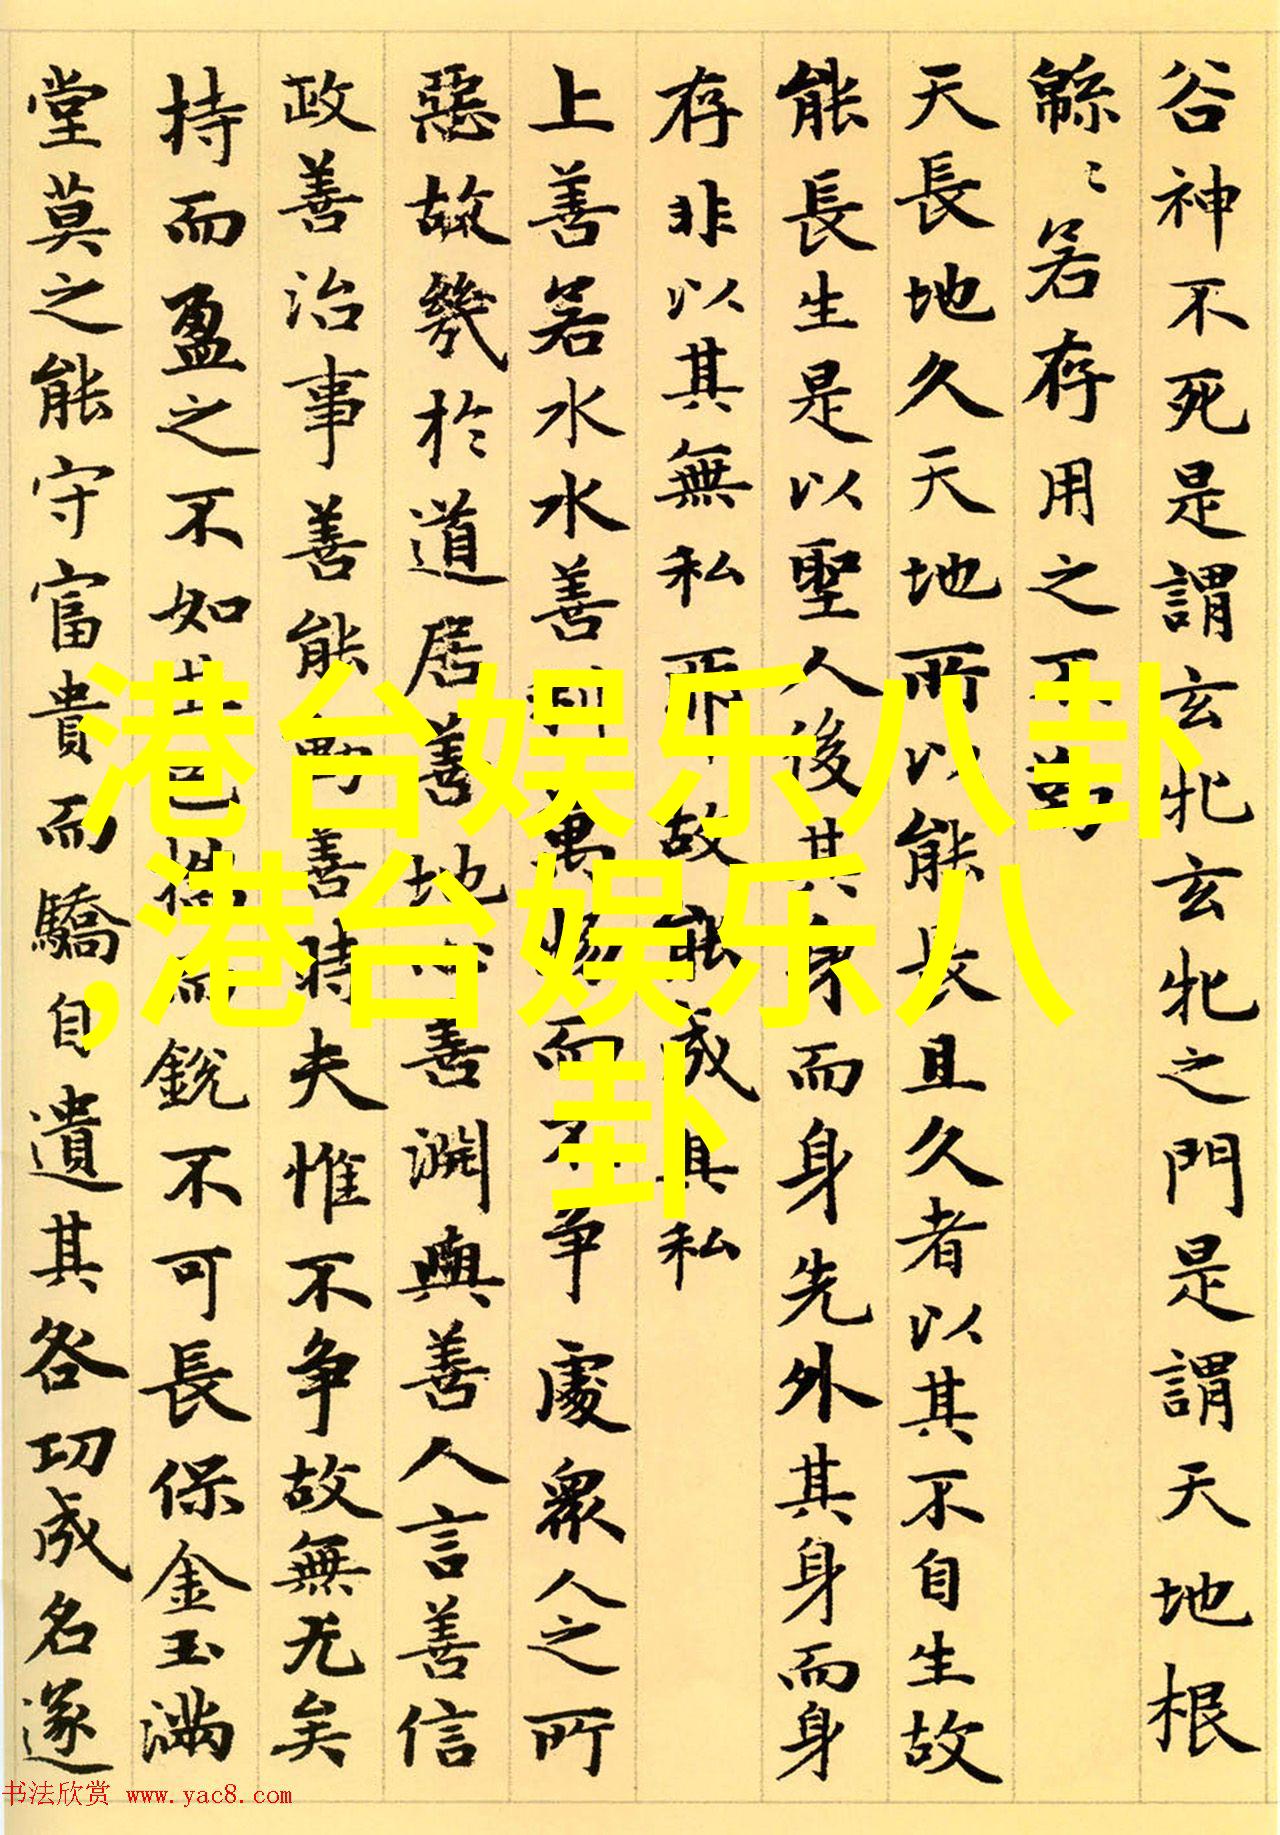 谷神不死是謂玄牝玄牝之門是謂天地根
緜〻若存用之不勤
天長地久天地所以能長且久者以其不自生故
能長生是以聖人後其身而身先外其身而身
存非以其無私耶故能成其私
上善若水水善利萬物而不争處衆人之所
惡故幾於道居善地心善淵與善人言善信
政善治事善能動善時夫惟不争故無尤矣
持而盈之不如其已揣而銳不可長保金玉滿
堂莫之能守富貴而驕自遺其咎功成名遂
港台娱乐八卦
,港台娱乐八
卦
书法欣赏 www.yac8.com